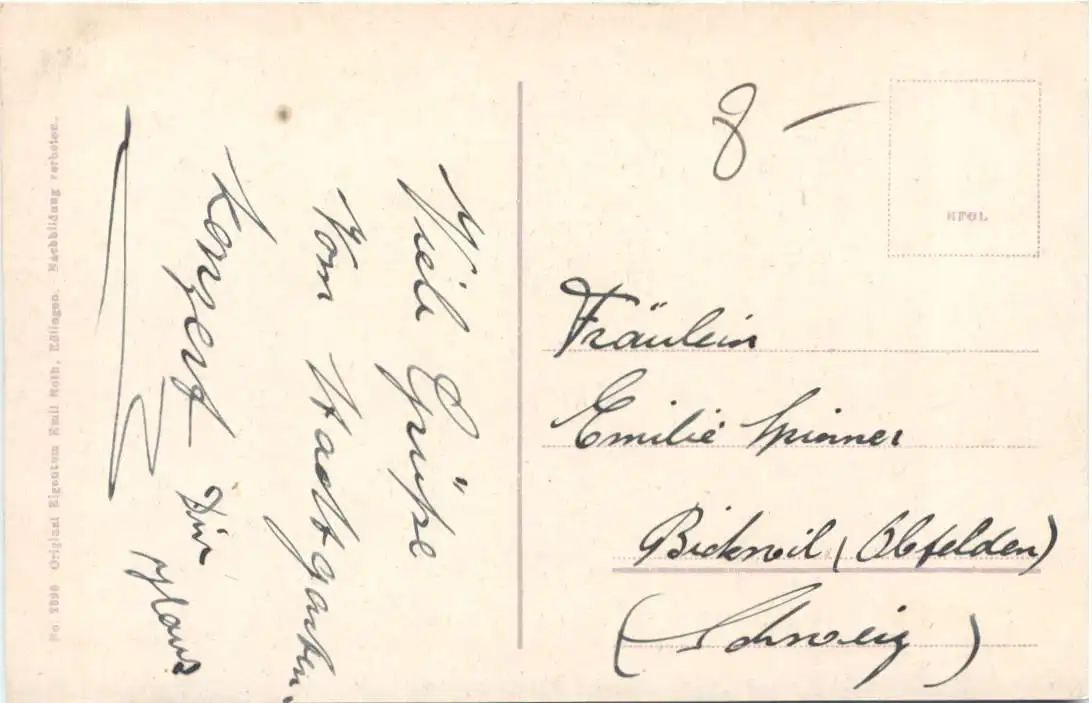 Viele Grüße
vom Stadtgarten,
Konzert
Dir
Hans
8 –
Fräulein
Emilie Spinner
Bickwil (Obfelden)
(Schweiz)
No. 2896 Original Eigentum Emil Roth, Nachbildung verboten.